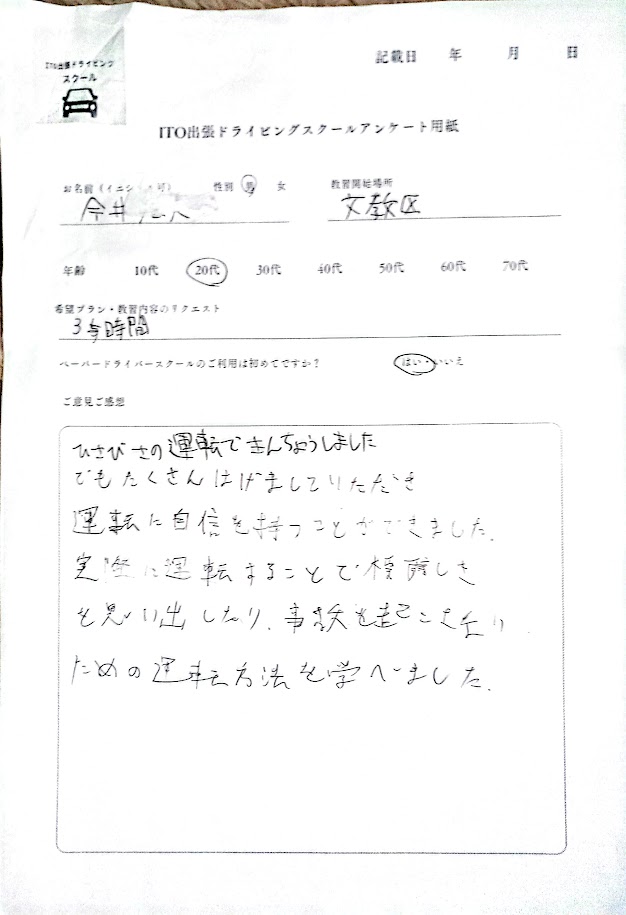 ITO出張ドライビング
スクール
記載日 年 月 日
ITO出張ドライビングスクールアンケート用紙
お名前(イニシ 可) 性別 男 女 教習開始場所
今井 文教区
年齢 10代 20代 30代 40代 50代 60代 70代
希望プラン・教習内容のリクエスト
3時間
ペーパードライバースクールのご利用は初めてですか? はい・いいえ
ご意見ご感想
ひさびさの運転できんちょうしました
でもたくさんはげましていただき
運転に自信を持つことができました。
実際に運転することで模しさ
を思い出したり、事故を起こさない
ための運転方法を学べました。